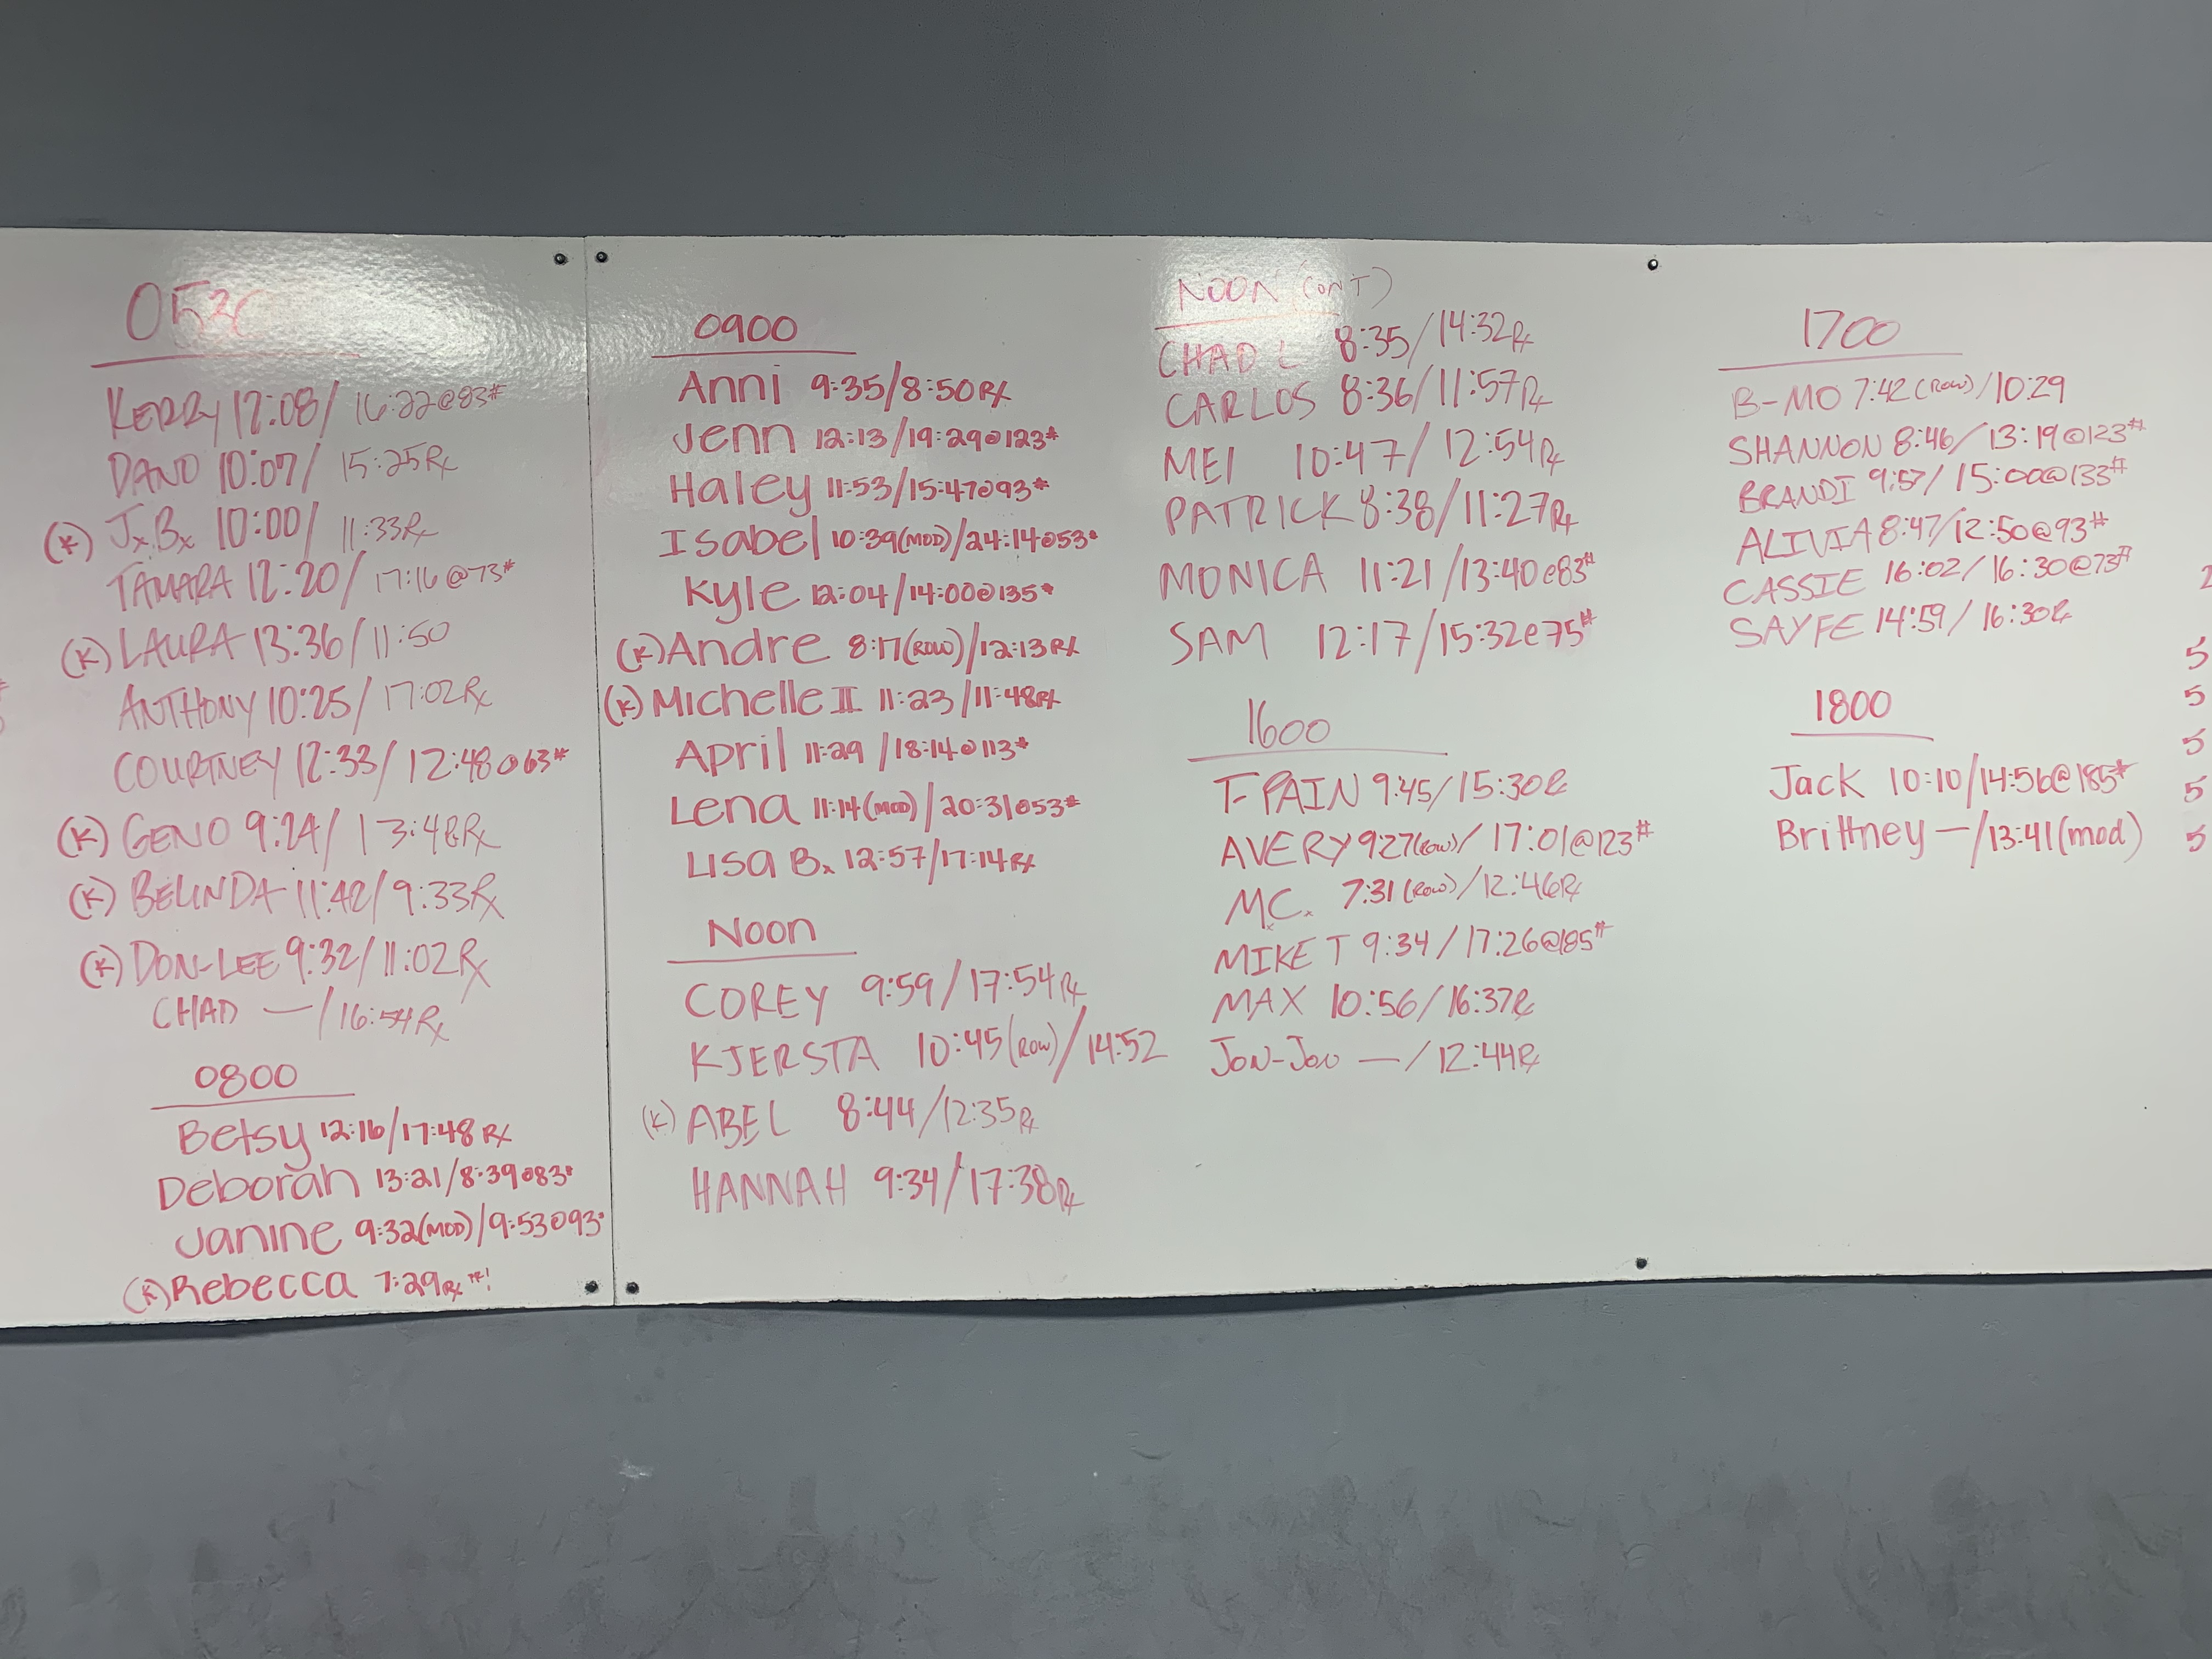 0530
KERRY 12:08/ 16:22@83#
DANO 10:07/ 15:25Rx
(K) JxBx 10:00/ 11:33Rx
TAMARA 12:20/ 17:16@73#
(K) LAURA 13:36/11:50
ANTHONY 10:25/ 17:02Rx
COURTNEY 12:33/ 12:48@63#
(K) GENO 9:24/ 13:48Rx
(K) BELINDA 11:42/9:33Rx
(K) DON-LEE 9:32/11:02Rx
CHAD —/16:54Rx
0800
Betsy 12:16/17:48Rx
Deborah 13:21/8:39@83#
Janine 9:32(MOD)/9:53@93#
(K) Rebecca 7:29Rx
0900
Anni 9:35/8:50Rx
Jenn 12:13/19:29@123#
Haley 11:53/15:47@93#
Isabel 10:39(MOD)/24:14@53#
Kyle 12:04/14:00@135#
(K) Andre 8:17(ROW)/12:13Rx
(K) Michelle II 11:23/11:48Rx
April 11:29/18:14@113#
Lena 11:14(MOD)/20:31@53#
Lisa B. 12:57/17:14Rx
Noon
COREY 9:59/17:54Rx
KJERSTA 10:45(ROW)/14:52
(K) ABEL 8:44/12:35Rx
HANNAH 9:34/17:38Rx
NOON (CONT)
CHAD L 8:35/14:32Rx
CARLOS 8:36/11:57Rx
MEI 10:47/12:54Rx
PATRICK 8:38/11:27Rx
MONICA 11:21/13:40@83#
SAM 12:17/15:32@75#
1600
T-PAIN 9:45/15:30Rx
AVERY 9:27(ROW)/17:01@123#
M.C. 7:31(ROW)/12:46Rx
MIKE T 9:34/17:26@185#
MAX 10:56/16:37Rx
JON-JON —/12:44Rx
1700
B-MO 7:42(ROW)/10:29
SHANNON 8:46/13:19@123#
BRANDI 9:57/15:00@133#
ALIVIA 8:47/12:50@93#
CASSIE 16:02/16:30@73#
SAYFE 14:59/16:30Rx
1800
Jack 10:10/14:56@185#
Brittney —/13:41(mod)
5
5
5
5
5